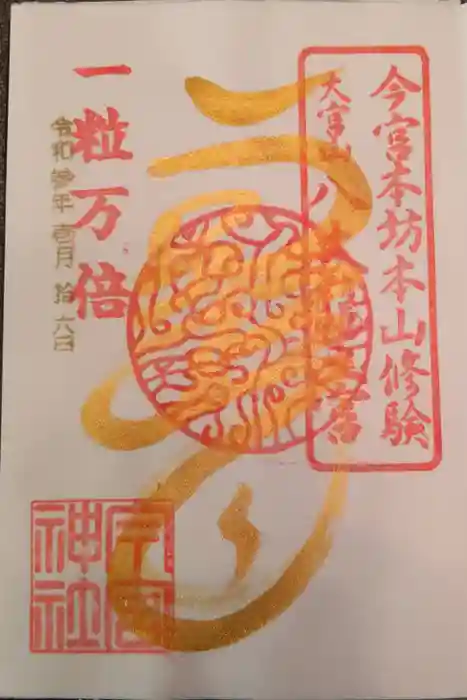 今宮本坊本山修験
大宮山八大
一粒万倍
令和参年壱月拾六日
神社